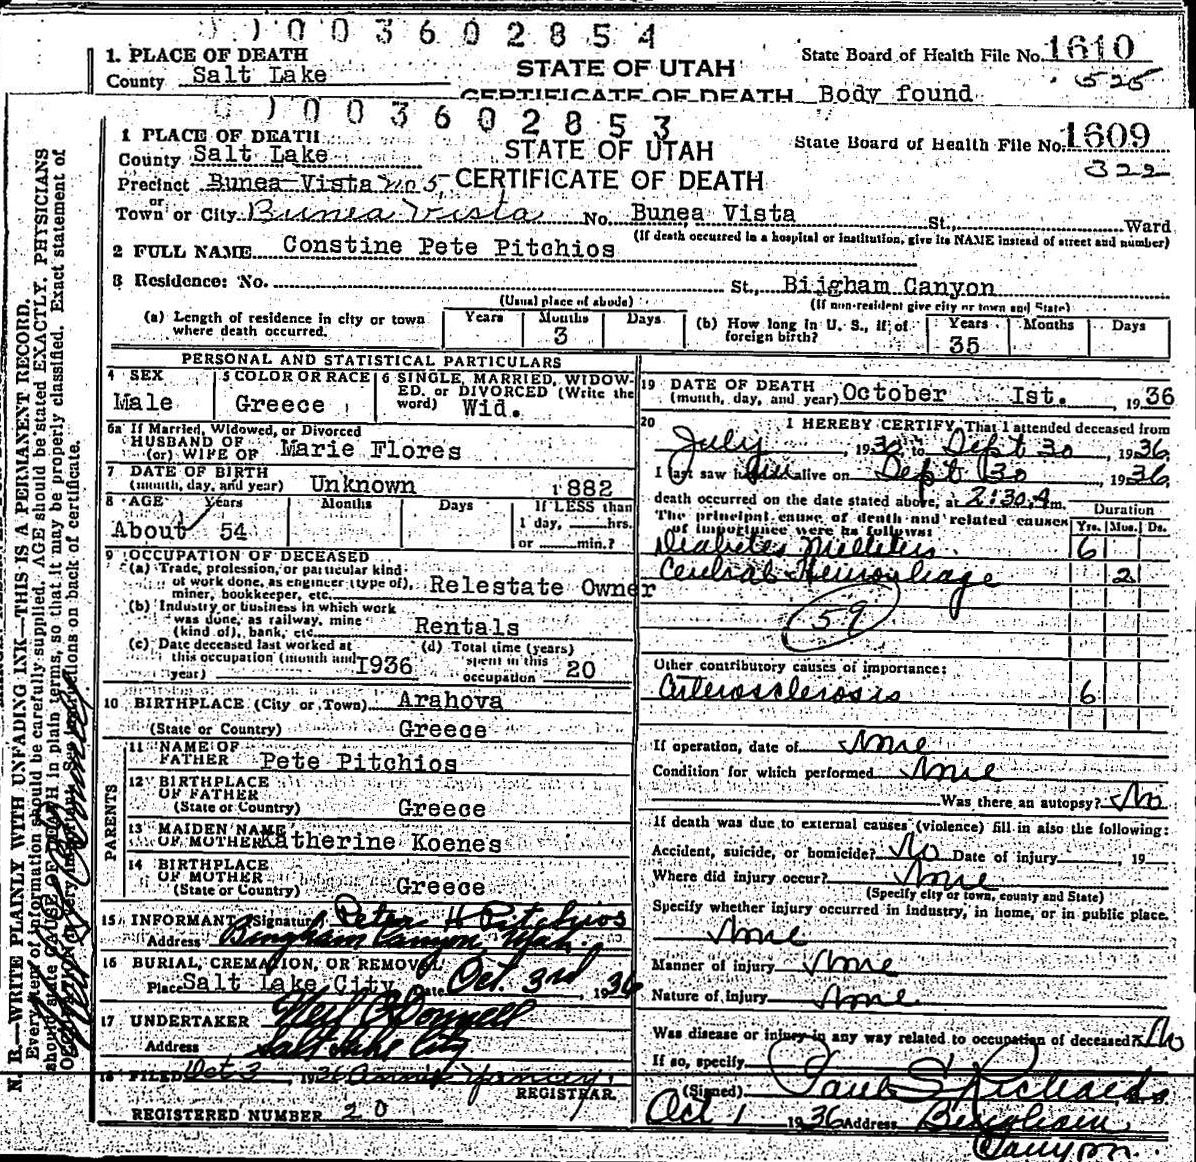 1003602854
1. PLACE OF DEATH
County Salt Lake
STATE OF UTAH
State Board of Health File No. 1610
525
CERTIFICATE OF DEATH Body found
1003602853
1 PLACE OF DEATH
County Salt Lake
STATE OF UTAH
State Board of Health File No. 1609
322
Precinct Bunea Vista no 5 CERTIFICATE OF DEATH
or
Town or City Bunea Vista No. Bunea Vista St., Ward
(If death occurred in a hospital or institution, give its NAME instead of street and number)
2 FULL NAME Constine Pete Pitchios
3 Residence: No. St., Biigham Canyon
(Usual place of abode) (If non-resident give city or town and State)
(a) Length of residence in city or town where death occurred. Years Months 3 Days
(b) How long in U. S., if of foreign birth? Years 35 Months Days
PERSONAL AND STATISTICAL PARTICULARS
4 SEX Male
5 COLOR OR RACE Greece
6 SINGLE, MARRIED, WIDOWED, or DIVORCED (Write the word) Wid.
6a If Married, Widowed, or Divorced
HUSBAND OF
(or) WIFE OF Marie Flores
7 DATE OF BIRTH
(month, day, and year) Unknown 1882
8 AGE Years Months Days If LESS than
About 54 1 day, hrs.
or min.?
9 OCCUPATION OF DECEASED
(a) Trade, profession, or particular kind
of work done, as engineer (type of),
miner, bookkeeper, etc. Relestate Owner
(b) Industry or business in which work
was done, as railway, mine
(kind of), bank, etc. Rentals
(c) Date deceased last worked at
this occupation (month and
year) 1936
(d) Total time (years)
spent in this
occupation 20
10 BIRTHPLACE (City or Town) Arahova
(State or Country) Greece
PARENTS
11 NAME OF
FATHER Pete Pitchios
12 BIRTHPLACE
OF FATHER
(State or Country) Greece
13 MAIDEN NAME
OF MOTHER Katherine Koenes
14 BIRTHPLACE
OF MOTHER
(State or Country) Greece
15 INFORMANT (Signature) Peter H Pitchios
Address Bingham Canyon, Utah.
16 BURIAL, CREMATION, OR REMOVAL
Place Salt Lake City Date Oct. 3rd, 1936
17 UNDERTAKER Neil O'Donnell
Address Salt Lake City
18 FILED Oct 3 1936 Annie Yancey
REGISTRAR.
REGISTERED NUMBER 20
19 DATE OF DEATH
(month, day, and year) October Ist. , 1936
20 I HEREBY CERTIFY, That I attended deceased from
July , 1936, to Sept 30 , 1936,
I last saw him alive on Sept 30 , 1936,
death occurred on the date stated above, at 2:30 A m.
The principal cause of death and related causes
of importance were as follows:
Duration
Yrs. Mos. Ds.
Diabetes Mellitus 6
Cerebral Hemorrhage 2
59
Other contributory causes of importance:
Arterosclerosis 6
If operation, date of None
Condition for which performed None
Was there an autopsy? No
If death was due to external causes (violence) fill in also the following:
Accident, suicide, or homicide? No Date of injury , 19
Where did injury occur? None
(Specify city or town, county and State)
Specify whether injury occurred in industry, in home, or in public place.
None
Manner of injury None
Nature of injury None
Was disease or injury in any way related to occupation of deceased? No
If so, specify
(Signed) Paul S. Richards
Oct 1 1936 Address Bingham
Canyon
N. B.—WRITE PLAINLY WITH UNFADING INK—THIS IS A PERMANENT RECORD.
Every item of information should be carefully supplied. AGE should be stated EXACTLY. PHYSICIANS
should state CAUSE OF DEATH in plain terms, so that it may be properly classified. Exact statement of
OCCUPATION is very important. See instructions on back of certificate.